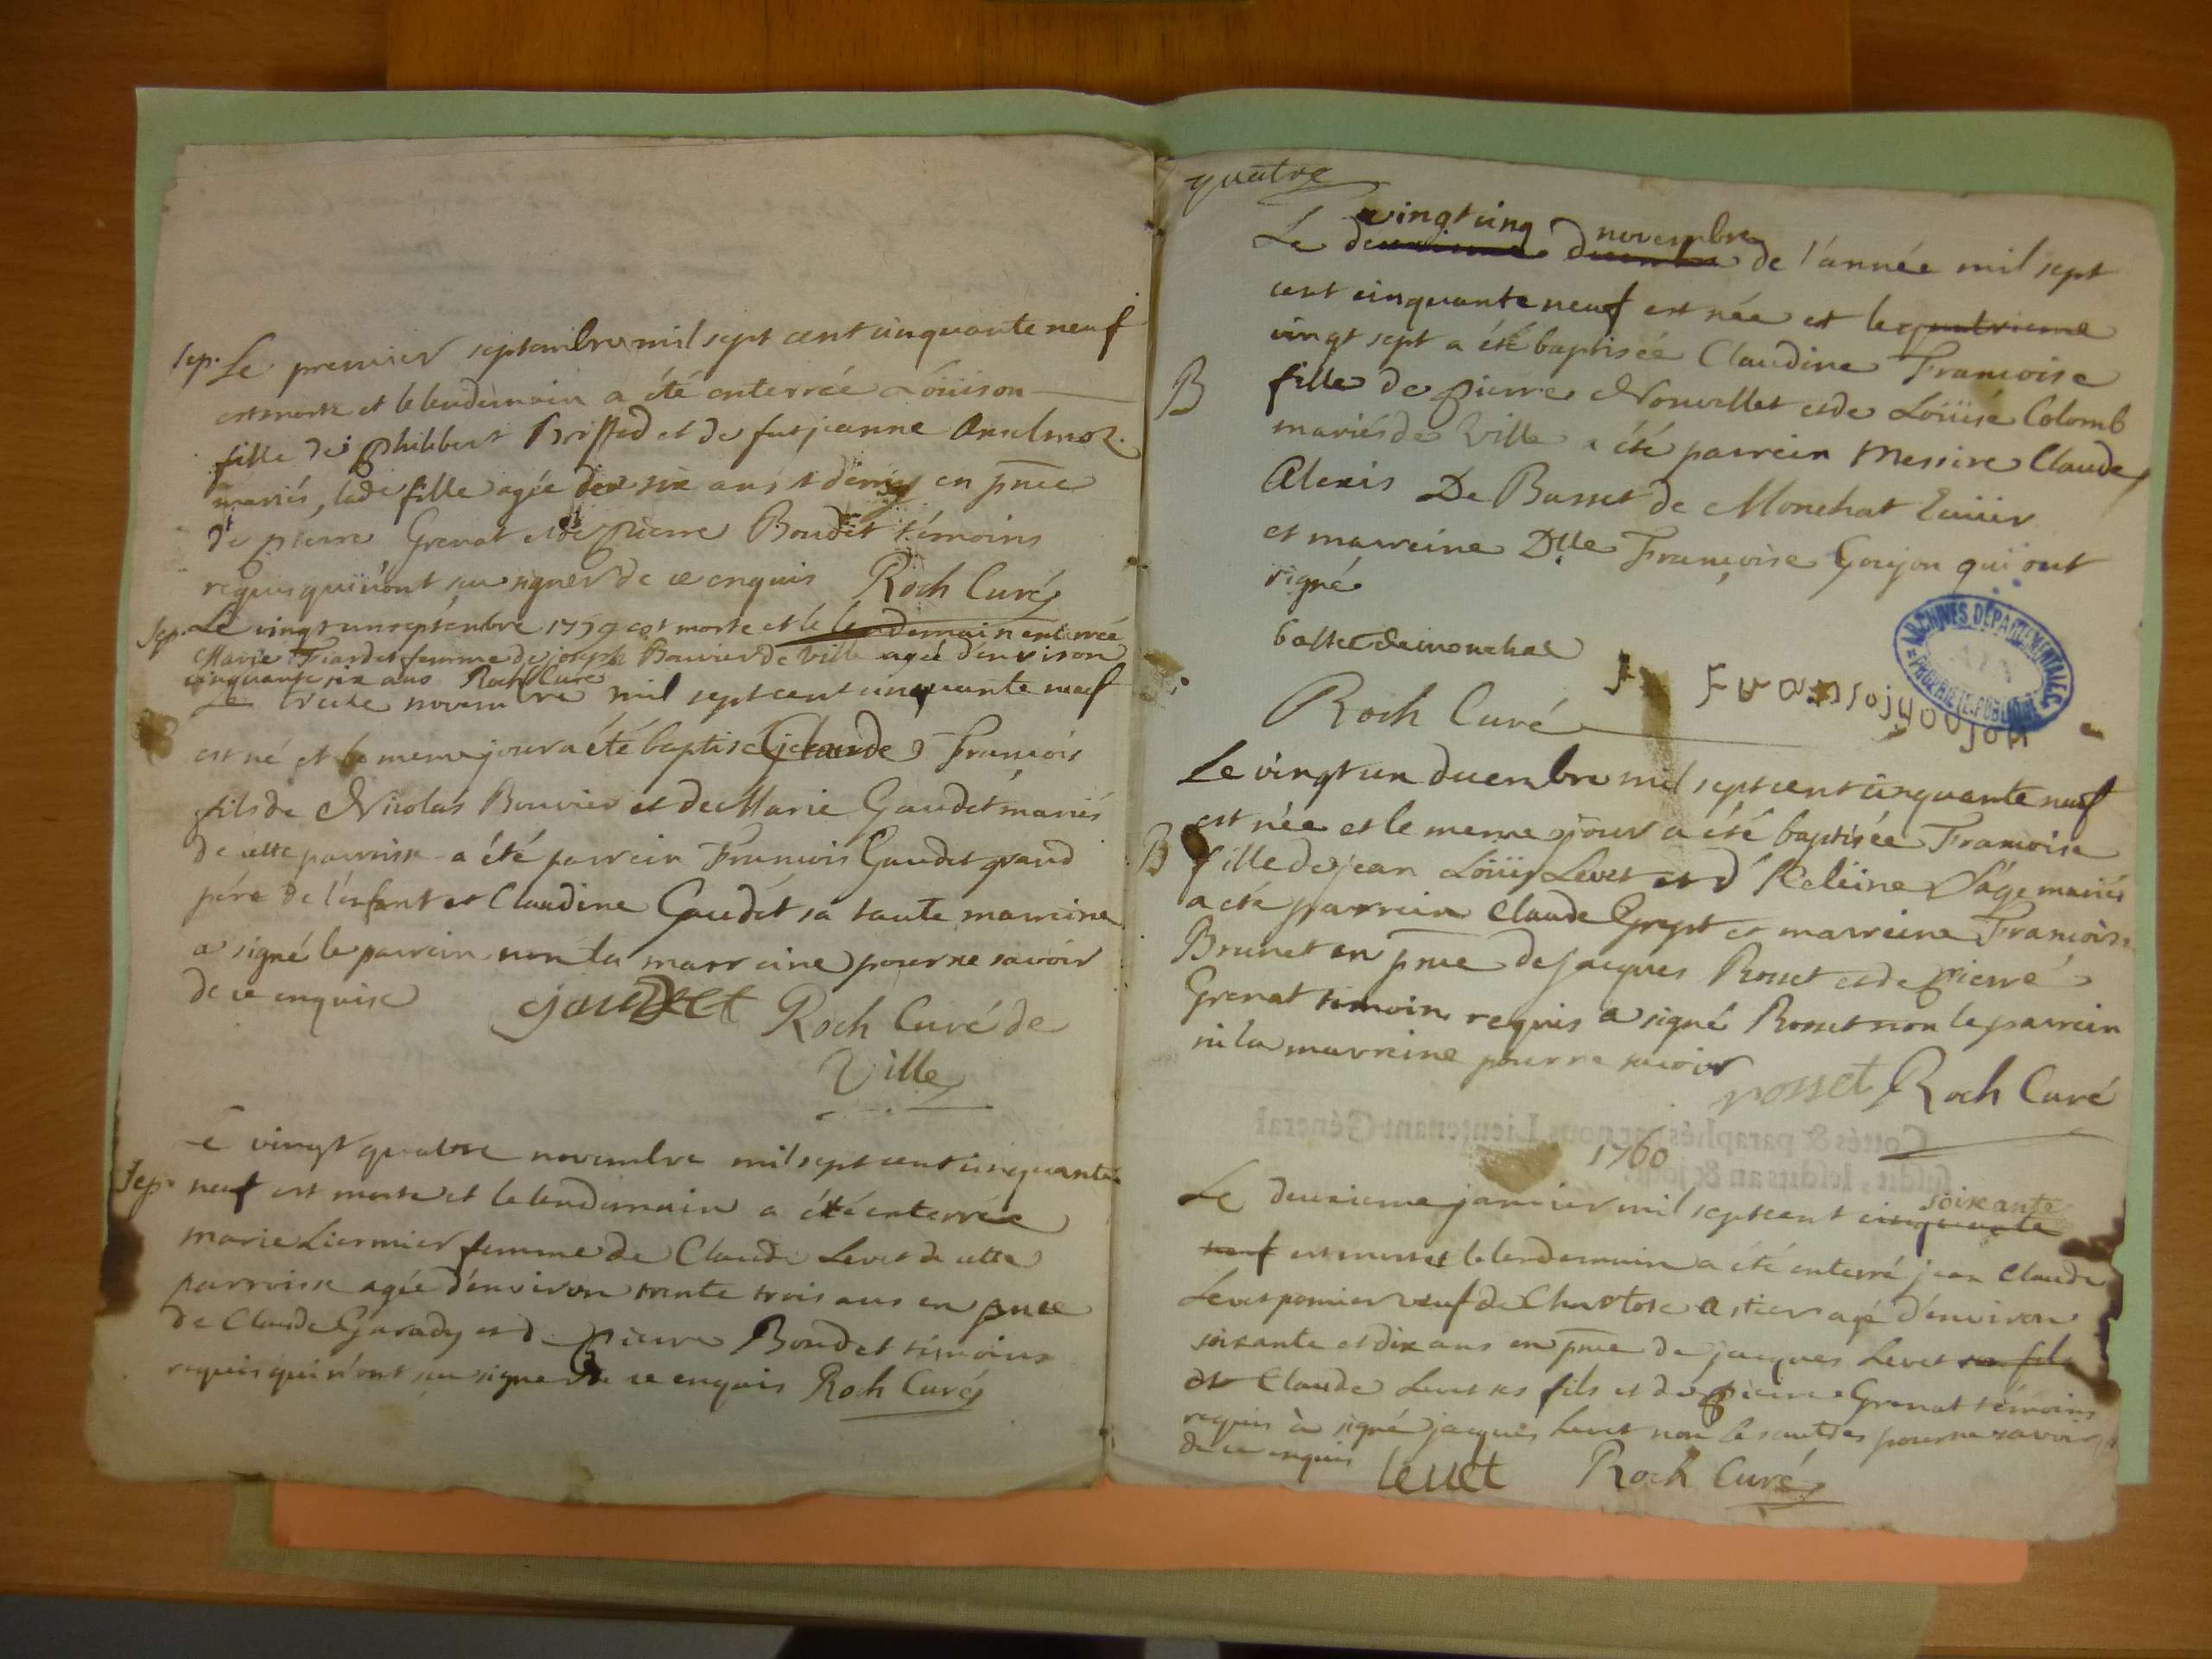 Sep. Le premier septembre mil sept cent cinquante neuf
est morte et le lendemain a été enterrée Loüison
fille de philibert Briffod et de fut jeanne Anselmoz
mariés, lade fille agée de six ans et demy en pnce
de pierre Grenat et de pierre Boudet témoins
requis qui n'ont su signer de ce enquis Roch Curé
Sep. Le vingt un septembre 1759 est morte et le lendemain enterrée
Marie femme de joseph Bouvier de Ville agée d'environ
cinquante six ans Roch Curé
Le treize novembre mil sept cent cinquante neuf
est né et le meme jour a été baptisé Claude François
fils de Nicolas Bouvier et de Marie Gaudet mariés
de cette parroisse a été parrein François Gaudet grand
pére de l'enfant et Claudine Gaudet sa tante marreine
a signé le parrein non la marreine pour ne savoir
de ce enquise gaudet Roch Curé de
Ville
Le vingt quatre novembre mil sept cent cinquante
Sep. neuf est morte et le lendemain a été enterrée
marie Liermier femme de Claude Levet de cette
parroisse agée d'environ trente trois ans en pnce
de Claude Garady et de pierre Boudet témoins
requis qui n'ont su signer de ce enquis Roch Curé
quatre
vingt cinq novembre
Le deuxieme decembre de l'année mil sept
cent cinquante neuf est née et le quatrieme
vingt sept a été baptisée Claudine Françoise
B fille de pierre Nouvellet et de Loüise Colomb
mariés de Ville a été parrein Messire Claude
Alexis De Basset de Monchat Ecuier
et marreine Dlle Françoise Goujon qui ont
signé
basset de monchat
F Fransojy goujon
ARCHIVES DEPARTEMENTALES
PROPRIETE PUBLIQUE
Roch Curé
Le vingt un decembre mil sept cent cinquante neuf
est née et le meme jour a été baptisée Francoise
B fille de jean Loüis Levet et d' Heleine Sage mariés
a été parrein Claude Grept et marreine François
Brunet en pnce de jacques Rosset et de pierre
Grenat temoins requis a signé Rosset non le parrein
ni la marreine pour ne savoir
rosset Roch Curé
Cottés & paraphés par nous Lieutenant Général
susdit, lesdits an & jour.
1760
soixante
Le deuxieme janvier mil sept cent cinquante
neuf est mort et le lendemain a été enterré jean Claude
Levet premier veuf de Charlote Astier agé d'environ
soixante et dix ans en pnce de jacques Levet son fils
et Claude Levet ses fils et de pierre Grenat témoins
requis à signé jacques Levet non les autres pour ne savoir
de ce enquis levet Roch Curé